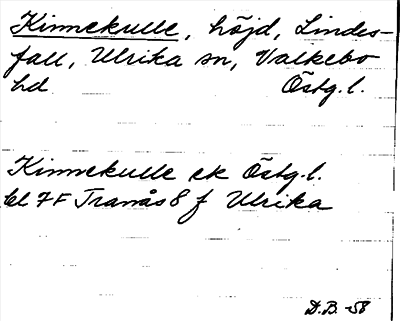 Kinnekulle, höjd, Lindes-
fall, Ulrika sn, Valkebo
hd Östg.l.
Kinnekulle ek Östg.l.
bl 7F Tranås 8 f Ulrika
D.B. -58